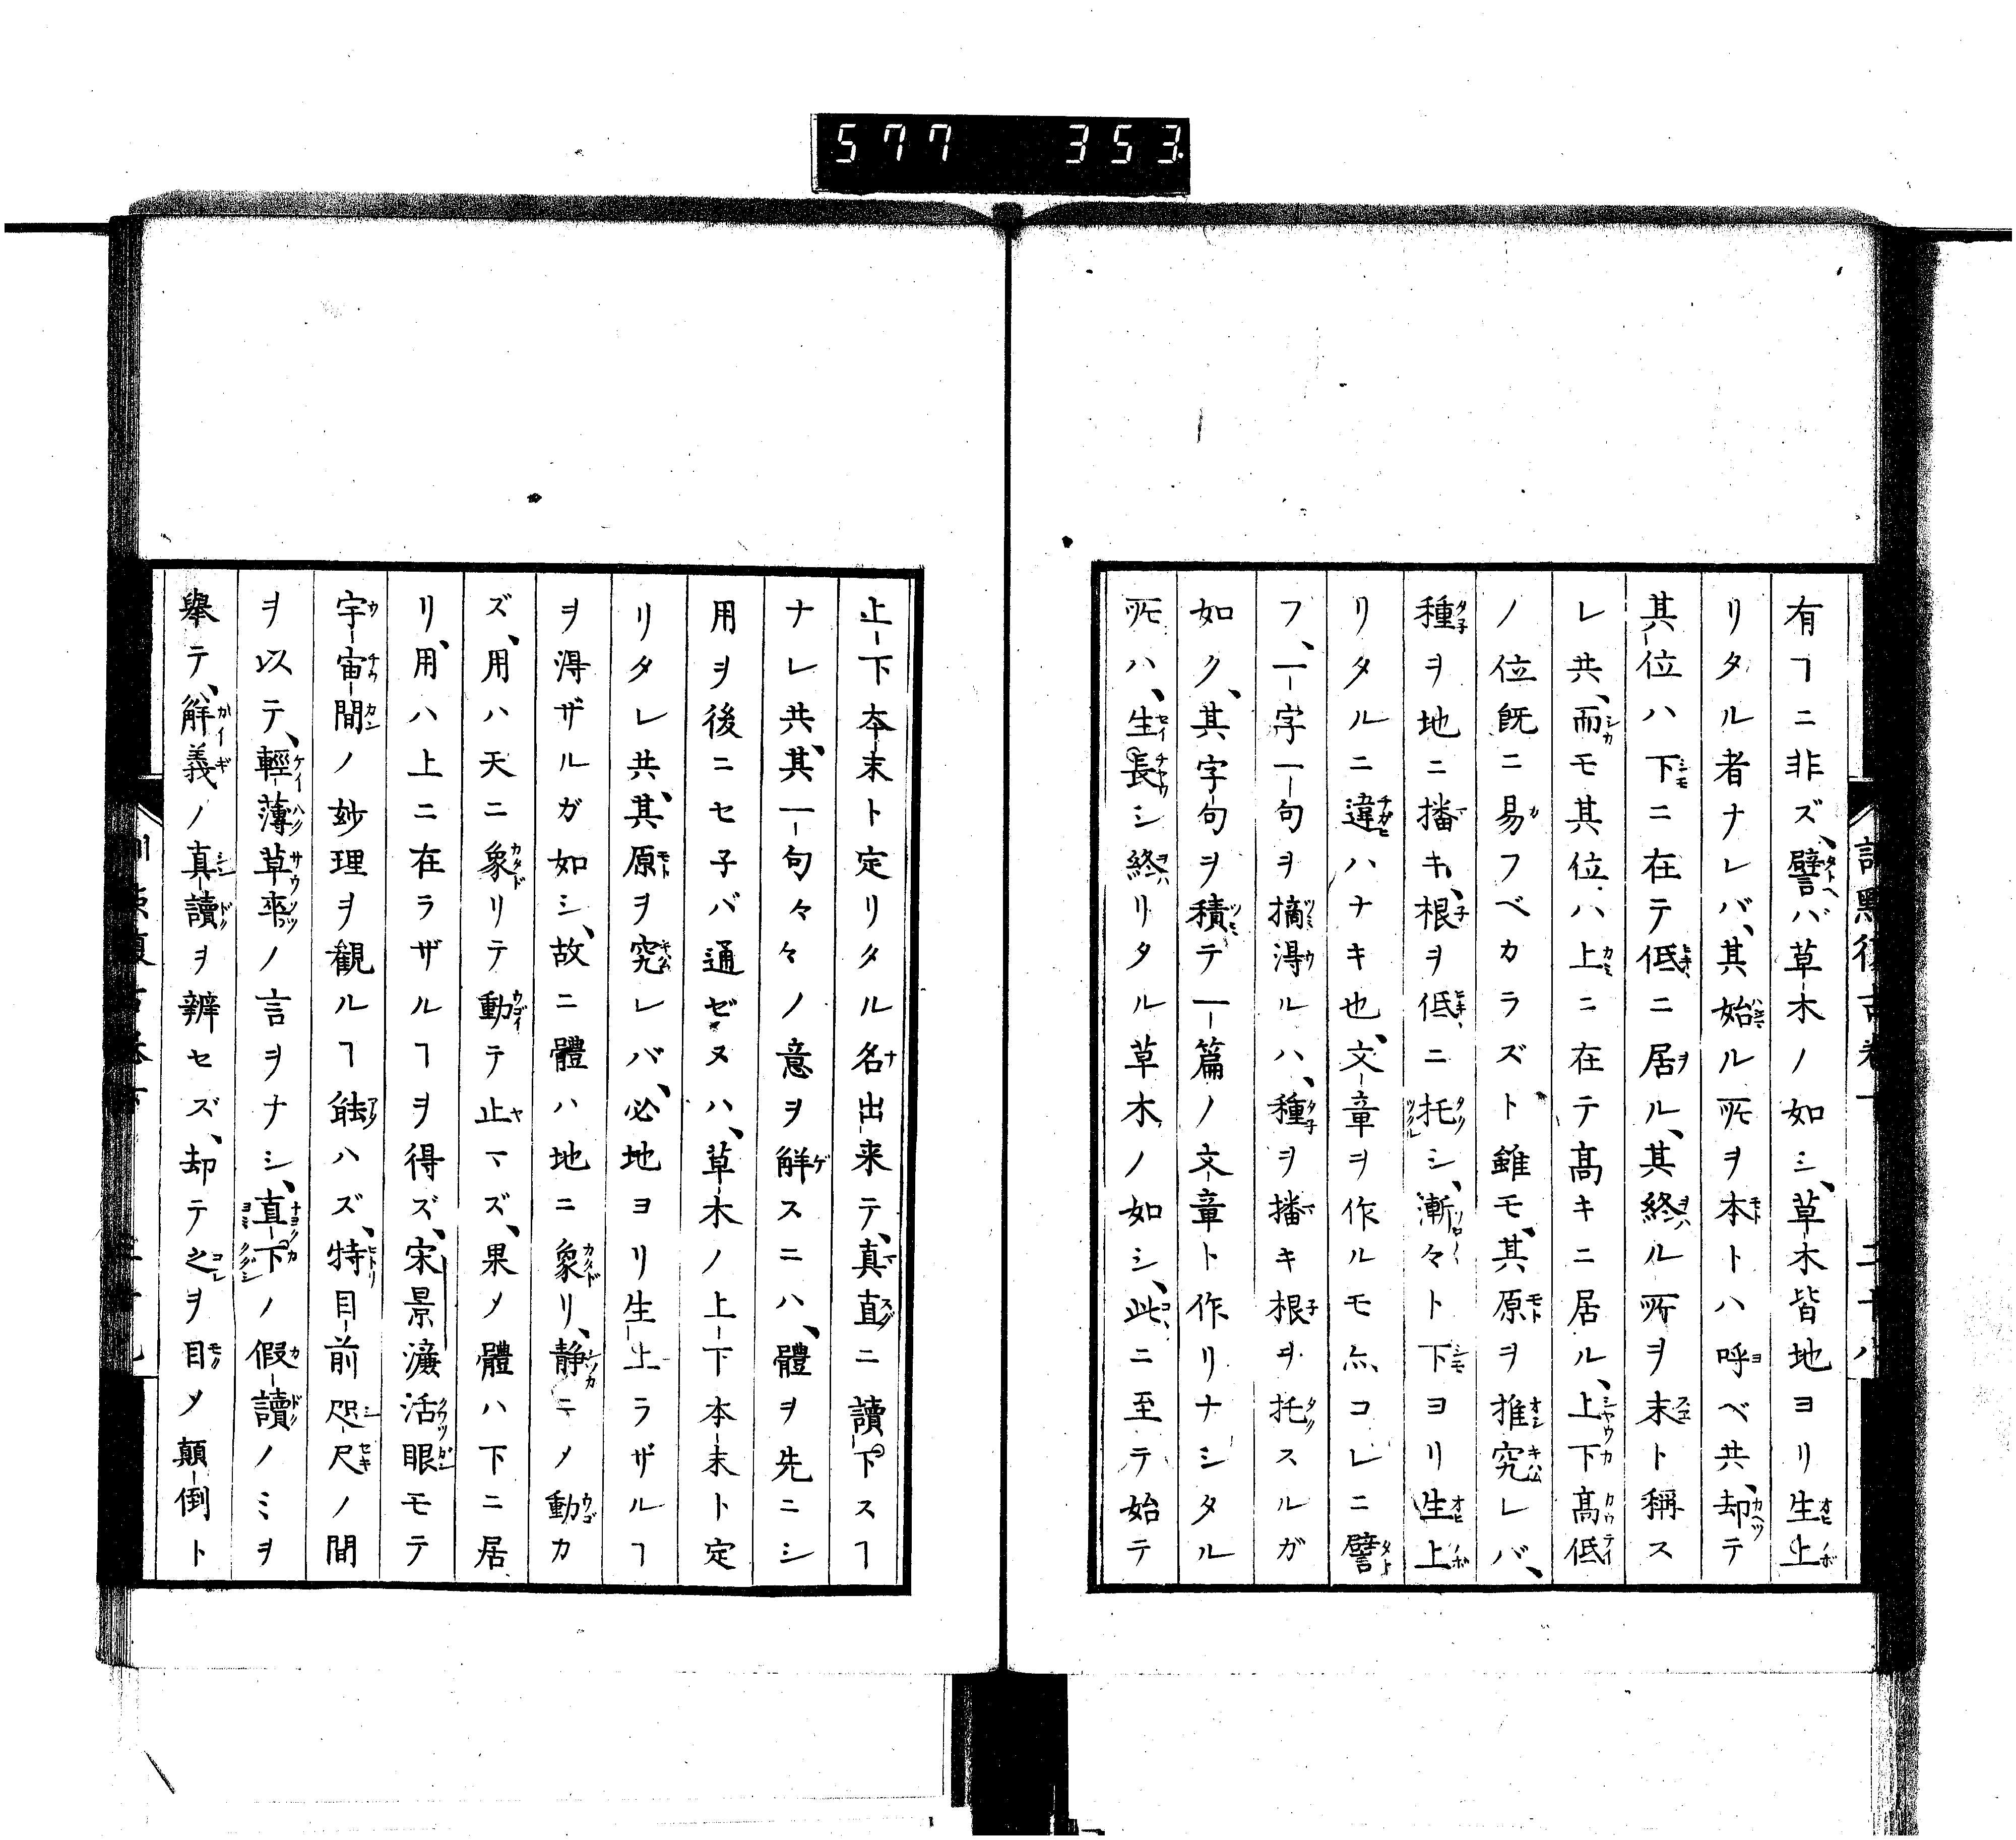 577 353
有ヿニ非ズ、譬バ草木ノ如シ、草木皆地ヨリ生上
リタル者ナレバ、其始ル所ヲ本トハ呼ベ共、却テ
其位ハ下ニ在テ低ニ居ル、其終ル所ヲ末ト稱ス
レ共、而モ其位ハ上ニ在テ高キニ居ル、上下高低
ノ位既ニ易フベカラズト雖モ、其原ヲ推究レバ、
種ヲ地ニ播キ、根ヲ低ニ托シ、漸々ト下ヨリ生上
リタルニ違ハナキ也、文章ヲ作ルモ亦コレニ譬
フ、一字一句ヲ摘得ルハ、種ヲ播キ根ヲ托スルガ
如ク、其字句ヲ積テ一篇ノ文章ト作リナシタル
所ハ、生長シ終リタル草木ノ如シ、此ニ至テ始テ
止下本末ト定リタル名出来テ、真直ニ讀下スヿ
ナレ共、其一句々々ノ意ヲ解スニハ、體ヲ先ニシ
用ヲ後ニセ子バ通ゼヌハ、草木ノ上下本末ト定
リタレ共、其原ヲ究レバ、必地ヨリ生上ラザルヿ
ヲ得ザルガ如シ、故ニ體ハ地ニ象リ、静ニノ動カ
ズ、用ハ天ニ象リテ動テ止マズ、果メ體ハ下ニ居
リ、用ハ上ニ在ラザルヿヲ得ズ、宋景濂活眼モテ
宇宙間ノ妙理ヲ観ルヿ能ハズ、特目前咫尺ノ間
ヲ以テ、輕薄草率ノ言ヲナシ、直下ノ假讀ノミヲ
舉テ、解義ノ真讀ヲ辨セズ、却テ之ヲ目メ顛倒ト